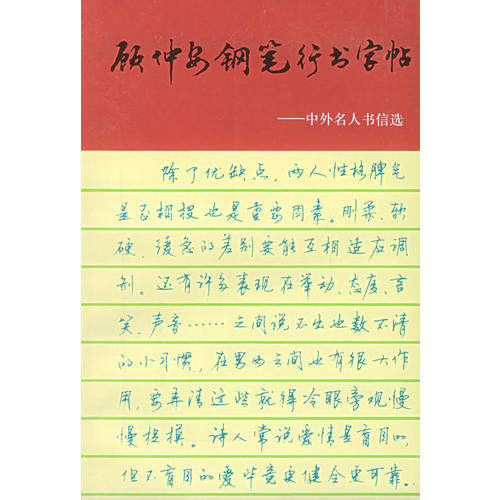 顾仲安钢笔行书字帖
——中外名人书信选
除了优缺点，两人性格脾气
是否相投也是重要因素。刚柔、软
硬、缓急的差别要能互相适应调
剂。还有许多表现在举动、态度、言
笑、声音……之间说不出也数不清
的小习惯，在男女之间也有很大作
用，要弄清这些就得冷眼旁观慢
慢揣摸。诗人常说爱情是盲目的，
但不盲目的爱毕竟更健全更可靠。